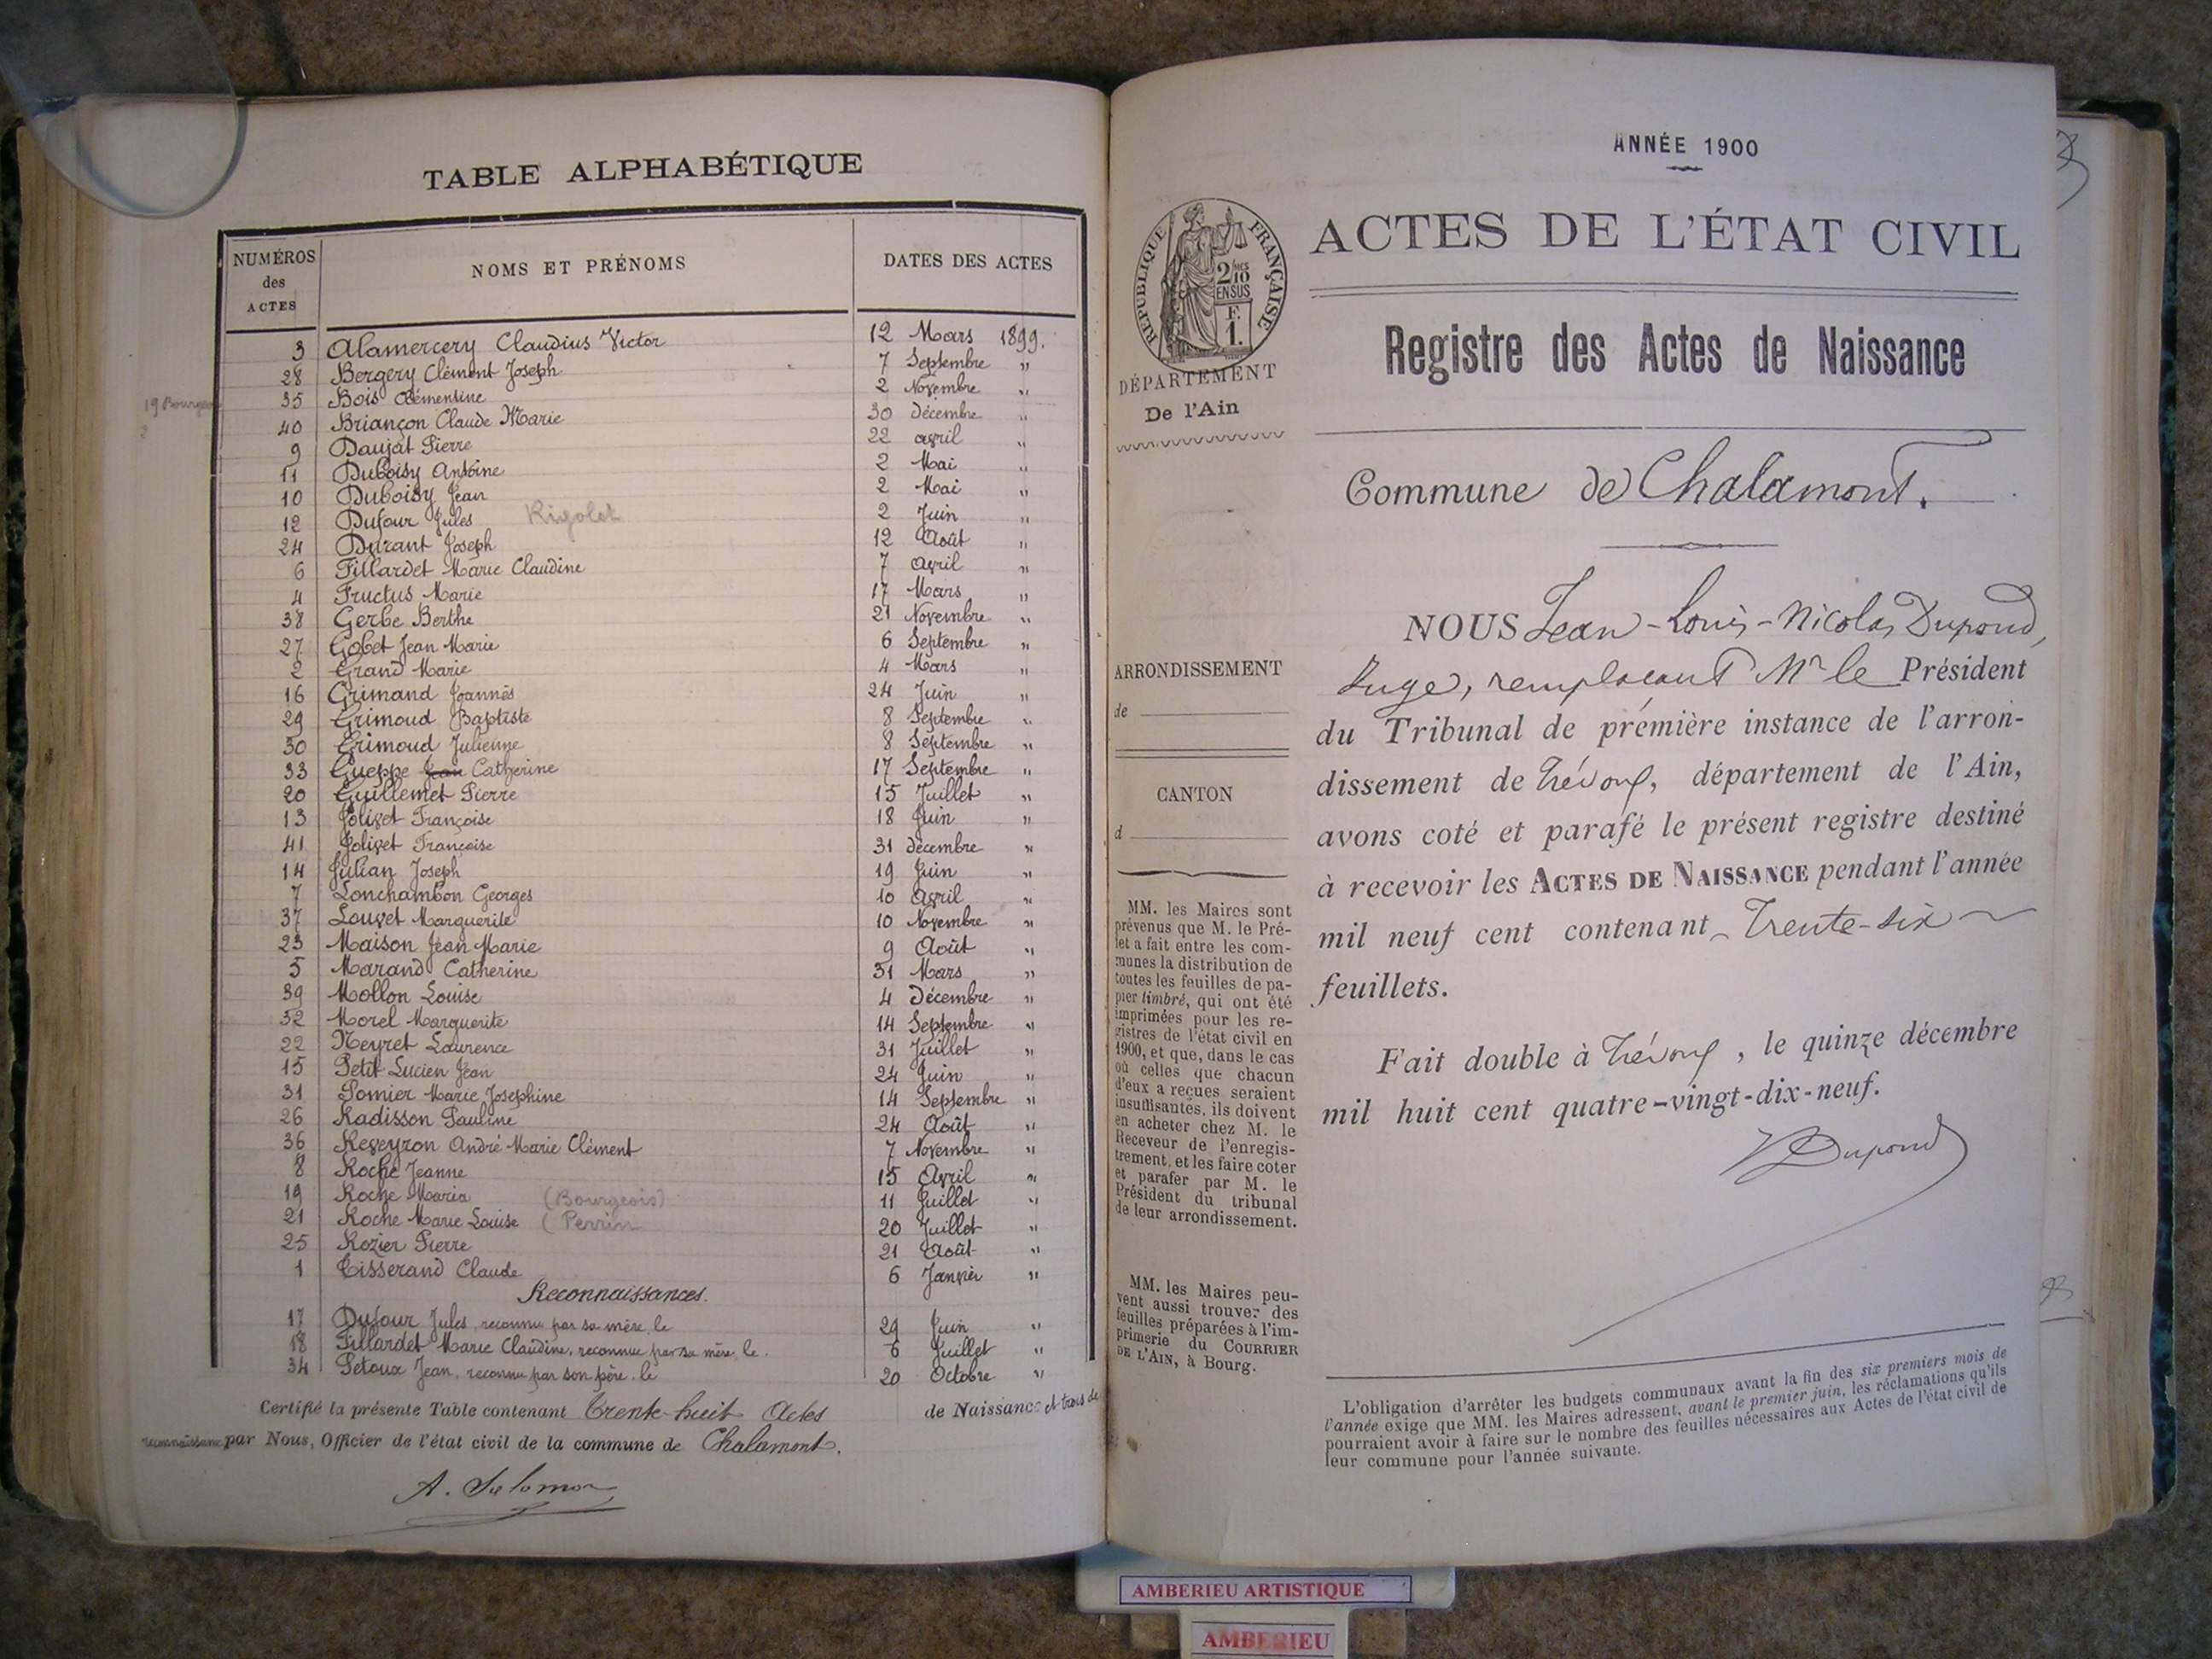 TABLE ALPHABÉTIQUE
NUMÉROS des ACTES NOMS ET PRÉNOMS DATES DES ACTES
3 Alamercery Claudius Victor 12 Mars 1899.
28 Bergery Clément Joseph 7 Septembre "
19 Bourgeois
35 Bois Clémentine 2 Novembre "
40 Briançon Claude Marie 30 Décembre "
9 Daujat Pierre 22 avril "
11 Duboisy Antoine 2 Mai "
10 Duboisy Jean 2 Mai "
12 Dufour Jules Rigolet 2 Juin "
24 Durant Joseph 12 Août "
6 Fillardet Marie Claudine 7 avril "
4 Fructus Marie 17 Mars "
38 Gerbe Berthe 21 Novembre "
27 Gobet Jean Marie 6 Septembre "
2 Grand Marie 4 Mars "
16 Grimand Joannès 24 Juin "
29 Grimoud Baptiste 8 Septembre "
30 Grimoud Julienne 8 Septembre "
33 Gueppe Jean Catherine 17 Septembre "
20 Guillemet Pierre 15 Juillet "
13 Jolivet Françoise 18 Juin "
41 Jolivet Françoise 31 décembre "
14 Julian Joseph 19 Juin "
7 Lonchambon Georges 10 Avril "
37 Louvet Marguerite 10 Novembre "
23 Maison Jean Marie 9 Août "
5 Marand Catherine 31 Mars "
39 Mollon Louise 4 Décembre "
32 Morel Marguerite 14 Septembre "
22 Neyret Laurence 31 Juillet "
15 Petit Lucien Jean 24 Juin "
31 Pomier Marie Josephine 14 Septembre "
26 Radisson Pauline 24 Août "
36 Reveyron André Marie Clément 7 Novembre "
8 Roche Jeanne 15 Avril "
19 Roche Maria (Bourgeois) 11 Juillet "
21 Roche Marie Louise (Perrin 20 Juillet "
25 Rozier Pierre 21 Août "
1 Tisserand Claude 6 Janvier "
Reconnaissances.
17 Dufour Jules, reconnu par sa mère, le 29 Juin "
18 Fillardet Marie Claudine, reconnue par sa mère, le. 6 Juillet "
34 Petoux Jean, reconnu par son père, le 20 Octobre "
Certifié la présente Table contenant Trente-huit Actes de Naissance et trois de
reconnaissance par Nous, Officier de l'état civil de la commune de Chalamont.
A. Salomon
RÉPUBLIQUE FRANÇAISE
2/10 EN SUS
F. 1.
DÉPARTEMENT
De l'Ain
ARRONDISSEMENT
de
CANTON
d
MM. les Maires sont
prévenus que M. le Pré-
fet a fait entre les com-
munes la distribution de
toutes les feuilles de pa-
pier timbré, qui ont été
imprimées pour les re-
gistres de l'état civil en
1900, et que, dans le cas
où celles que chacun
d'eux a reçues seraient
insuffisantes, ils doivent
en acheter chez M. le
Receveur de l'enregis-
trement, et les faire coter
et parafer par M. le
Président du tribunal
de leur arrondissement.
MM. les Maires peu-
vent aussi trouver des
feuilles préparées à l'im-
primerie du COURRIER
DE L'AIN, à Bourg.
ANNÉE 1900
ACTES DE L'ÉTAT CIVIL
Registre des Actes de Naissance
Commune de Chalamont.
NOUS Jean-Louis-Nicolas Dupond,
Juge, remplaçant Mr le Président
du Tribunal de première instance de l'arron-
dissement de Trévoux, département de l'Ain,
avons coté et parafé le présent registre destiné
à recevoir les ACTES DE NAISSANCE pendant l'année
mil neuf cent contenant Trente-six
feuillets.
Fait double à Trévoux, le quinze décembre
mil huit cent quatre-vingt-dix-neuf.
Dupond
L'obligation d'arrêter les budgets communaux avant la fin des six premiers mois de
l'année exige que MM. les Maires adressent, avant le premier juin, les réclamations qu'ils
pourraient avoir à faire sur le nombre des feuilles nécessaires aux Actes de l'état civil de
leur commune pour l'année suivante.
AMBERIEU ARTISTIQUE
AMBERIEU